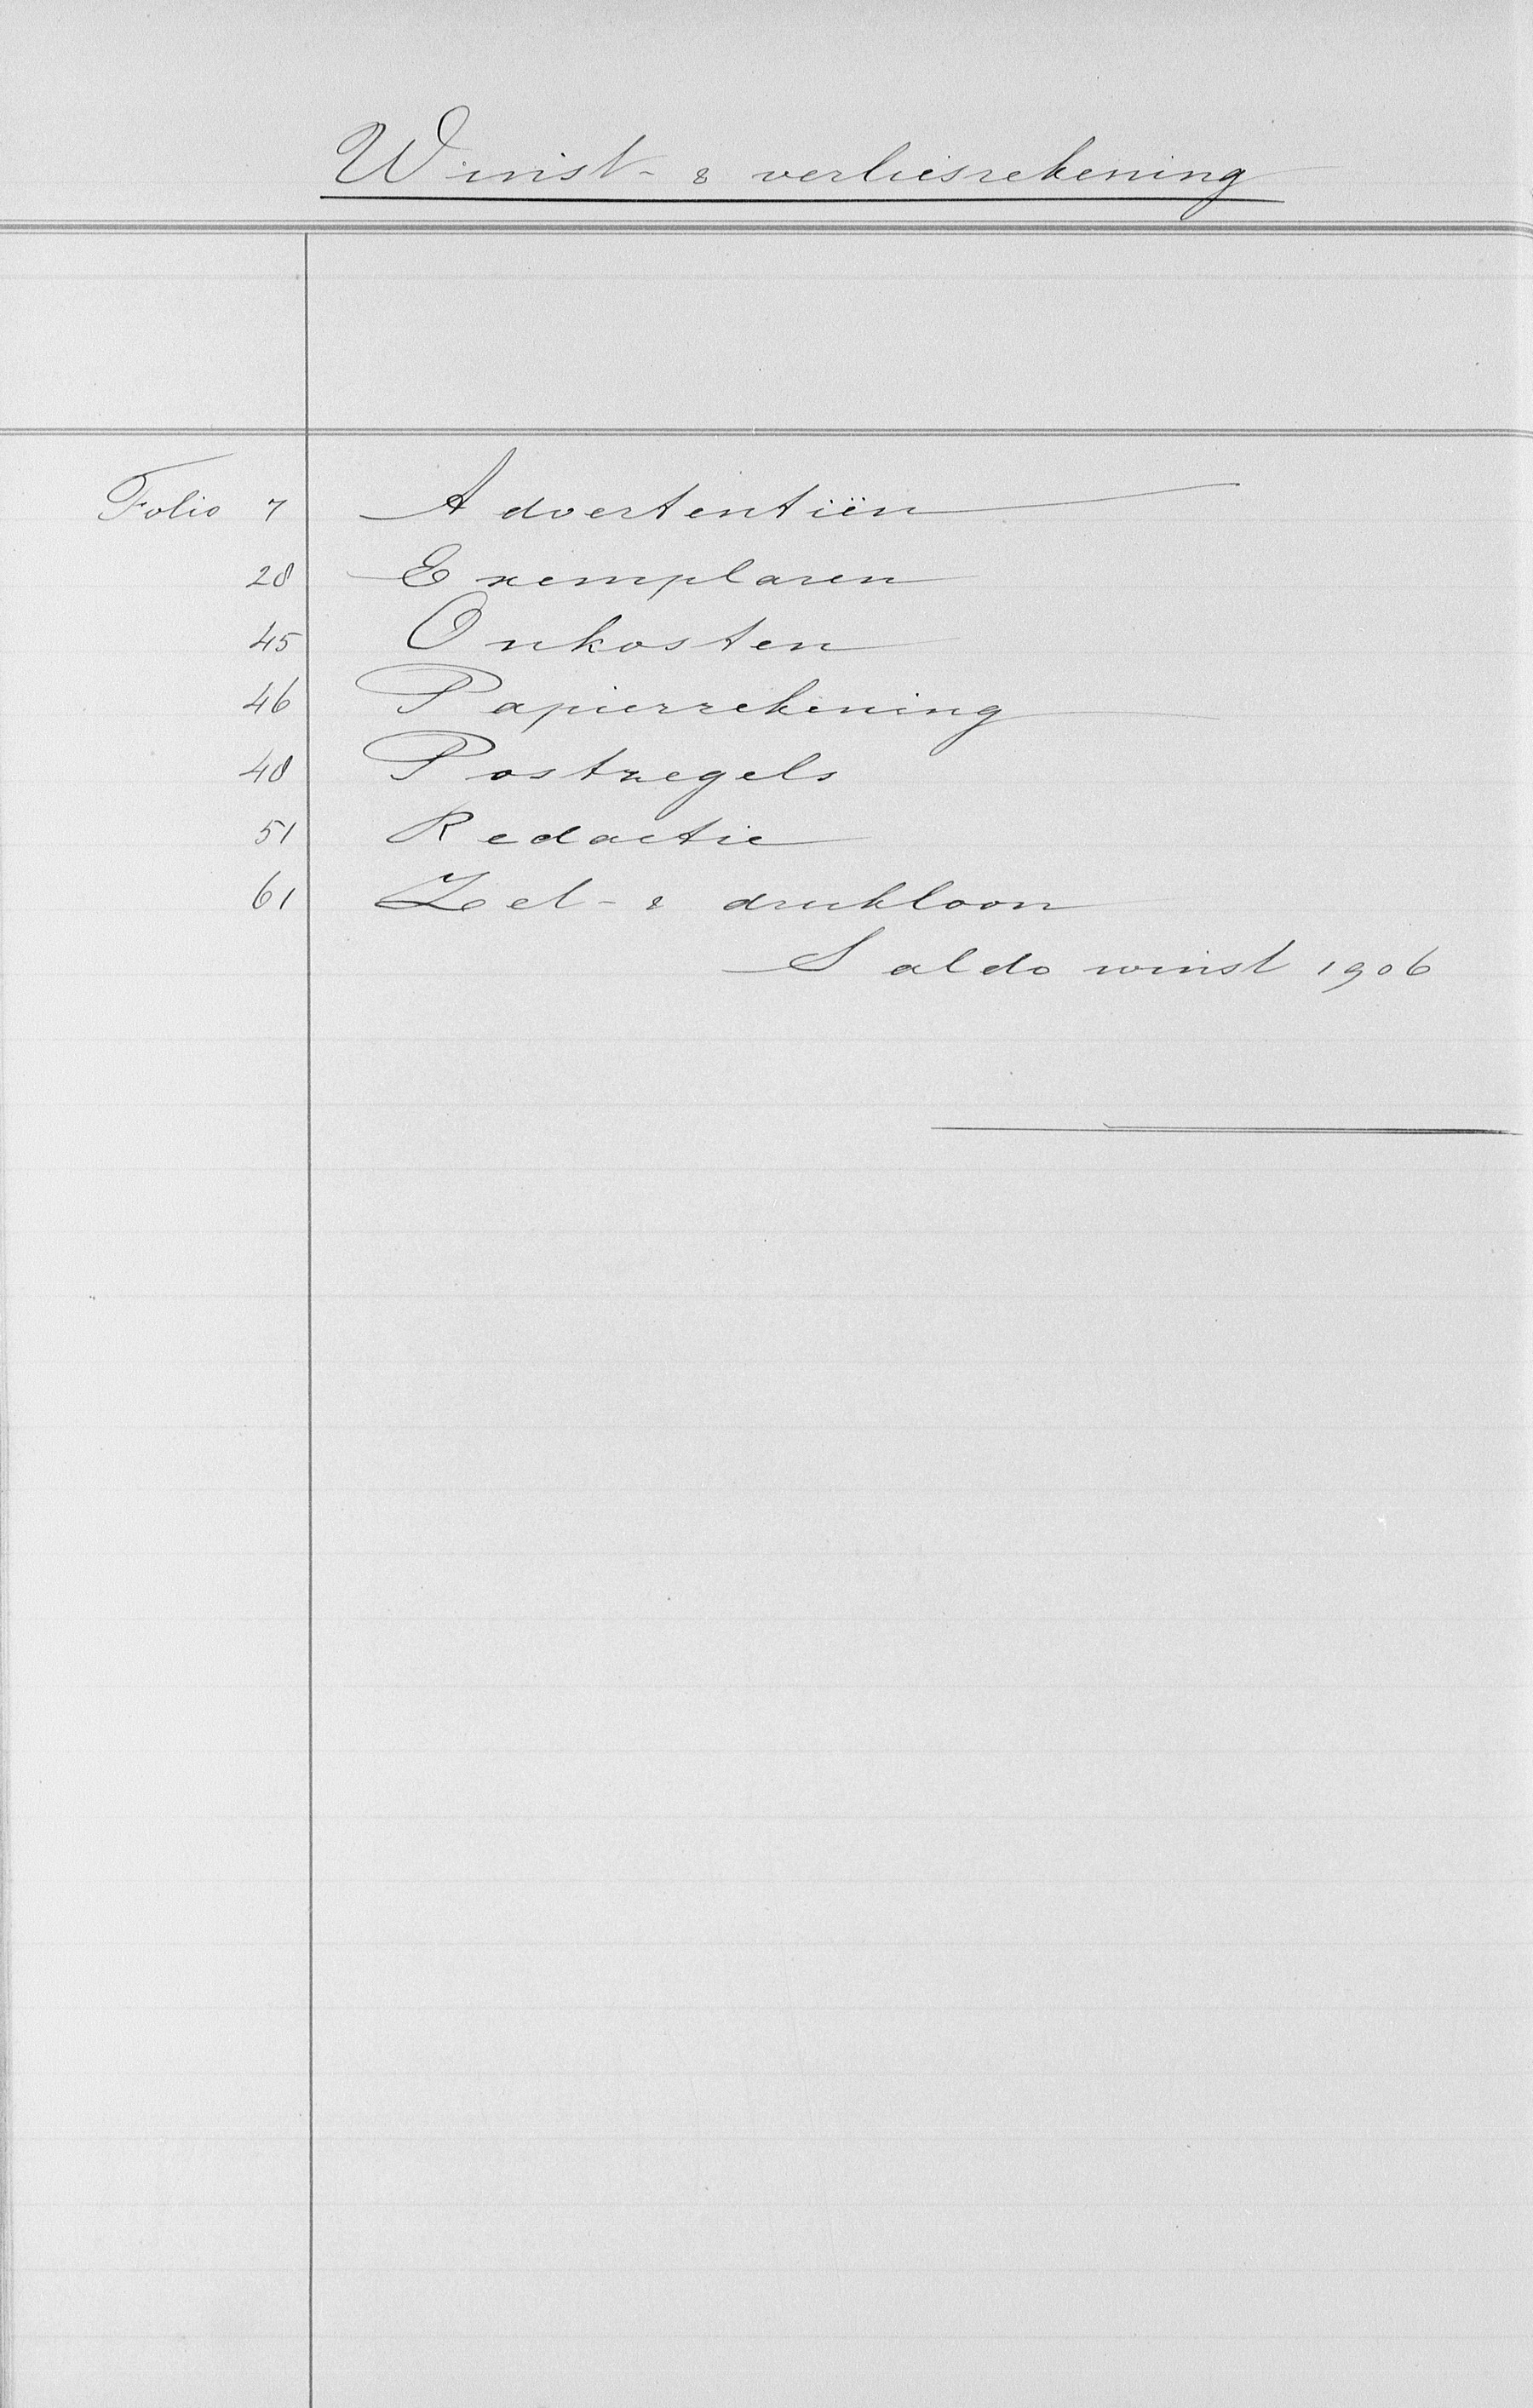 Winst- & verliesrekening
Folio 7 Advertentiën
28 Exemplaren
45 Onkosten
46 Papierrekening
48 Postzegels
51 Redactie
61 Zet- & drukloon
Saldo winst 1906